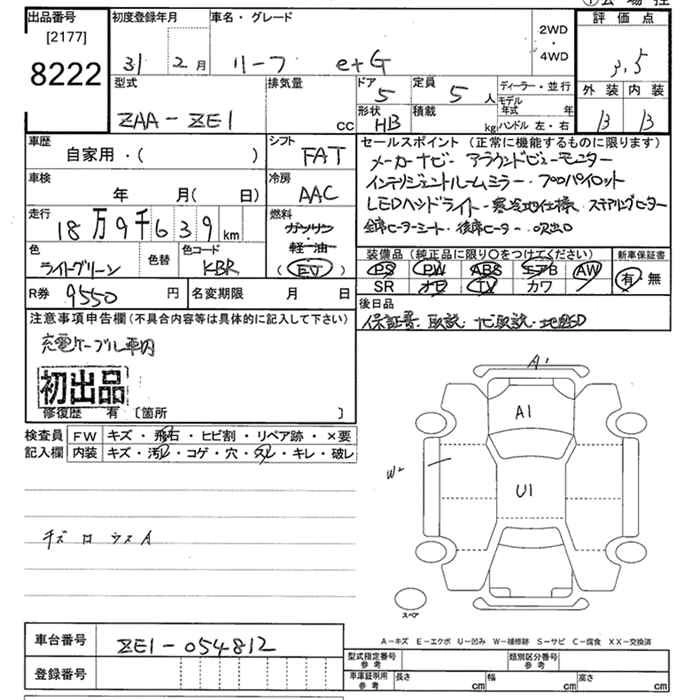 出品番号
[2177]
8222
初度登録年月
31 2月
車名・グレード
リーフ e+G
2WD
・
4WD
評価点
3.5
外装 内装
B B
型式
ZAA-ZE1
排気量
CC
ドア
5
定員
5人
形状
HB
積載
kg
ディーラー・並行
モデル年式 年
ハンドル 左・右
車歴
自家用・( )
シフト
FAT
車検
年 月( 日)
冷房
AAC
走行
18万9千639km
燃料
ガソリン
軽油
(EV)
色
ライトグリーン
色替
色コード
KBR
R券
9550円
名変期限 月 日
セールスポイント (正常に機能するものに限ります)
メーカーナビ・アラウンドビューモニター
インテリジェントルームミラー・プロパイロット
LEDヘッドライト・寒冷地仕様・ステアリングヒーター
全席ヒーターシート・後席ヒーター・吹出口
装備品(純正品に限り○をつけてください)
PS PW ABS エアB AW
SR ナビ TV カワ
新車保証書
有・無
後日品
保証書、取説・ナビ取説・地図SD
注意事項申告欄(不具合内容等は具体的に記入して下さい)
充電ケーブル車内
初出品
修復歴 有 〔箇所 〕
検査員
記入欄
FW キズ・飛石・ヒビ割・リペア跡・×要
内装 キズ・汚レ・コゲ・穴・スレ・キレ・破レ
キズ ロ ウスA
A1
A1
W2
U1
スペア
A-キズ E-エクボ U-凹み W-補修跡 S-サビ C-腐食 XX-交換済
車台番号
ZE1-054812
登録番号
型式指定番号
参考
類別区分番号
参考
車庫証明用
参考
長さ cm
幅 cm
高さ cm